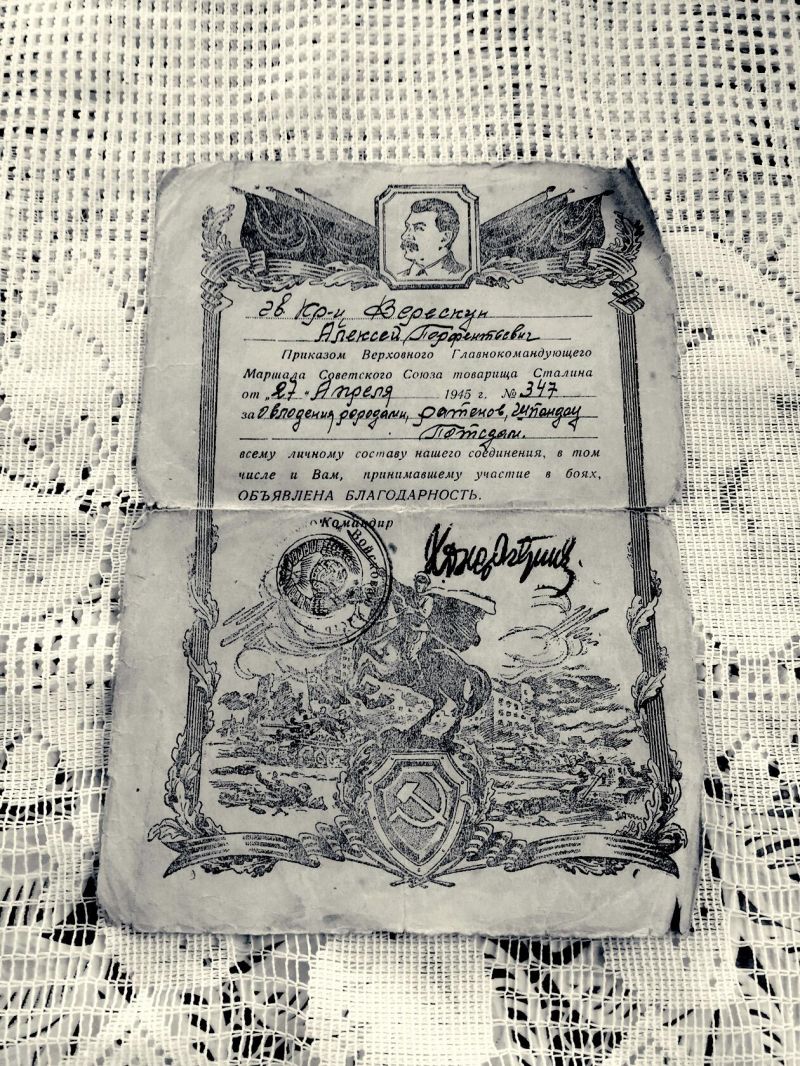 гв кр-ц Верескун
Алексей Парфентьевич
Приказом Верховного Главнокомандующего
Маршала Советского Союза товарища Сталина
от „27“ Апреля 1945 г. № 347
за овладения городами, ратенов, шпандау
Потсдам.
всему личному составу нашего соединения, в том
числе и Вам, принимавшему участие в боях,
ОБЪЯВЛЕНА БЛАГОДАРНОСТЬ.
Командир